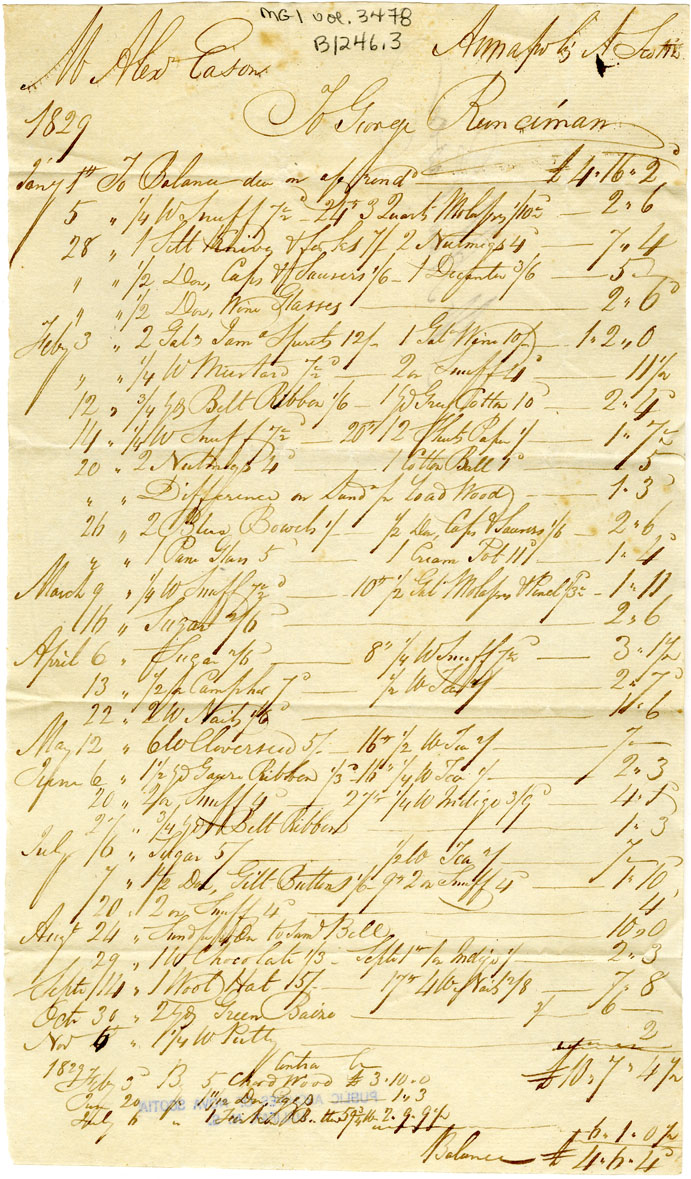 MG1 vol. 3478
B1246.3
Annapolis N Scotia
Mr Alexr Eason
1829
To George Runciman
Jany 1st To Balance due on aff rend £4"16"2
5 " 1/4 W Snuff 7½d — 24th 3 Quarts Molasses 1/10½ — 2"6
28 " 1 Sett Knives & forks 7/ 2 Nutmegs 4d — 7"4
" " 1/2 Doz, Cups & Saucers 1/6 — 1 Decanter 3/6 — 5"
" " 1/2 Doz, Wine Glasses — 2"6
Feby 3 " 2 Gals Jama Spirits 12/ — 1 Gal Wine 10/ — 1"2"0
" " 1/4 W Mustard 7½d — 2 oz Snuff 4d — 11½
12 " 3/4 yd Belt Ribbon 1/6 — 1 yd Grey Cotton 10d — 2"4
14 " 1/4 W Snuff 7½d — 20th 12 Sheets Paper 1/ — 1"7½
20 " 2 Nutmegs 4d — 1 Cotton Ball 1d — 5
" " Difference on Load Wood — 1"3
26 " 2 Blue Bowls 1/ — 1/2 Doz, Cups & Saucers 1/6 — 2"6
" " 1 Pane Glass 5d — 1 Cream Pot 11d — 1"4
March 9 " 1/4 W Snuff 7½d — 10th 1/2 Gal Molasses — 1"11
16 " Sugar 2/6 — 2"6
April 6 " Sugar 2/6 — 8th 1/4 W Snuff 7½d — 3"1½
13 " 1/2 oz Camphor 7d — 1/2 W Tea 2/ — 2"7
22 " 2 W Nails — 1"6
May 12 " 6 W Cloverseed 5/ — 16th 1/2 W Tea 2/ — 7"
June 6 " 1½ yd Gauze Ribbon 1/3 — 16th 1/4 W Tea 1/ — 2"3
20 " 2 oz, Snuff 4d — 27th 1/4 W Indigo 3/9 — 4"1
27 " 3/4 yd Belt Ribbon — 1"3
July 6 " Sugar 5/ — 1/2 W Tea 2/ — 7"
7 " 1½ Doz, Gilt Buttons 1/6 9th 2 oz Snuff 4d — 1"10
20 " 2 oz Snuff 4d — 4
Augt 24 " Sundries to Saml Bell — 10"0
29 " 1 W Chocolate 1/3 — Septr 1st 1 oz Indigo 1/ — 2"3
Septr 14 " 1 Wool Hat 5/ — 17th 4 W Nails 2/8 — 7"8
Octr 30 " 2 yds Green Baize — 6 —
Nov 6 " 1¼ W Putty — 2
£10"7"4½
Contra Cr
1829
Feby 3d By 5 Chord Wood £3"10"0
Jun 20 " Doz eggs 1"3
July 6 " 1 Firkin B 2"9"9½
PUBLIC ARCHIVES NOVA SCOTIA
6"1"0½
Balance £4"6"4